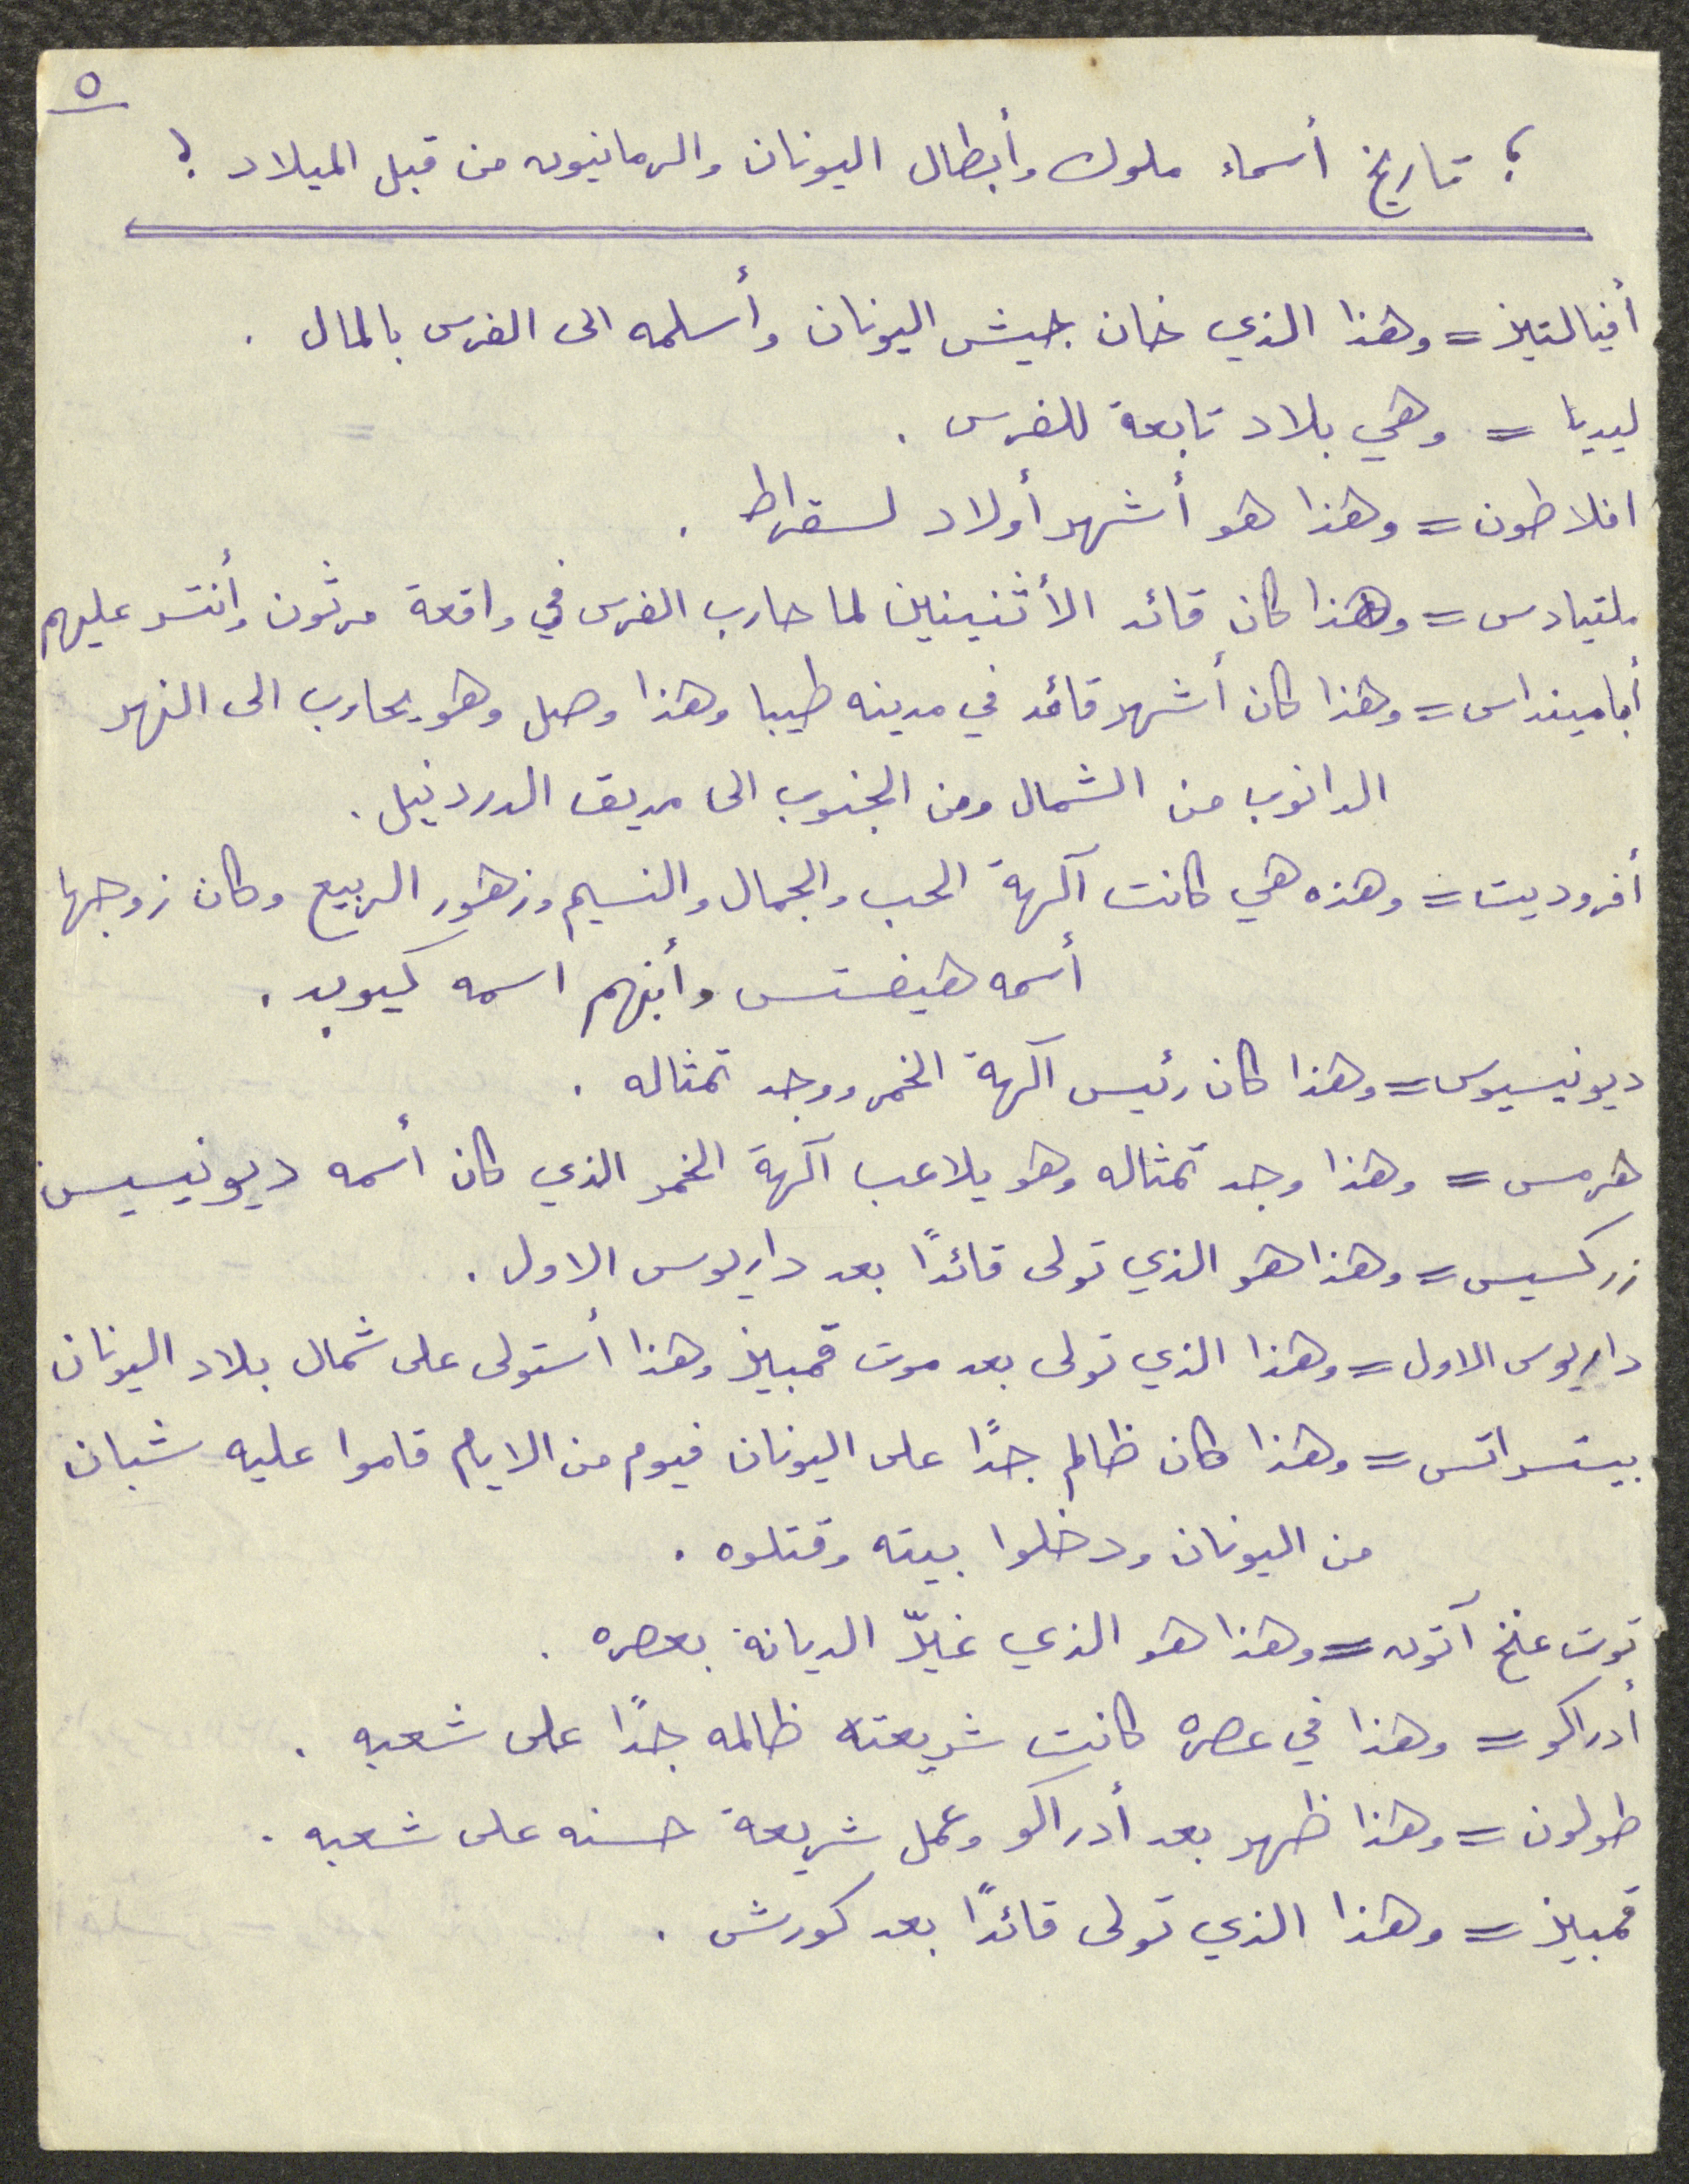 ٥
؟ تاريخ أسماء ملوك وأبطال اليونان والرمانيون من قبل الميلاد ؟
أفيالتيز = وهذا الذي خان جيش اليونان وأسلمه الى الفرس بالمال .
ليديا = وهي بلاد تابعة للفرس .
افلاطون = وهذا هو أشهر أولاد لسقراط .
ملتيادس = وهذا كان قائد الأثنينين لما حارب الفرس في واقعة مرثون وأنتسر عليهم
أبامينداس = وهذا كان أشهر قائد في مدينه طيبا وهذا وصل وهو يحارب الى النهر
الدانوب من الشمال ومن الجنوب الى مريق الدردنيل .
أفروديت = وهذه هي كانت آلهة الحب والجمال والنسيم وزهور الربيع وكان زوجها
أسمه هيفستس وأبنهم اسمه كيوبد .
ديونيسيوس = وهذا كان رئيس آلهة الخمر ووجد تمثاله .
هرمس = وهذا وجد تمثاله وهو يلاعب آلهة الخمر الذي كان أسمه ديونيسيس
زركسيس = وهذا هو الذي تولى قائدًا بعد داريوس الاول .
داريوس الاول = وهذا الذي تولى بعد موت قمبيز وهذا أستولى على شمال بلاد اليونان
بيتسراتس = وهذا كان ظالم جدًا على اليونان فيوم من الايام قاموا عليه شبان
من اليونان ودخلوا بيته وقتلوه .
توت عنخ آتون = وهذا هو الذي غيّر الديانة بعصره .
أدراكو = وهذا في عصره كانت شريعته ظالمه جدًا على شعبه .
طولون = وهذا ظهر بعد أدراكو وعمل شريعة حسنه على شعبه .
قمبيز = وهذا الذي تولى قائدًا بعد كورش .